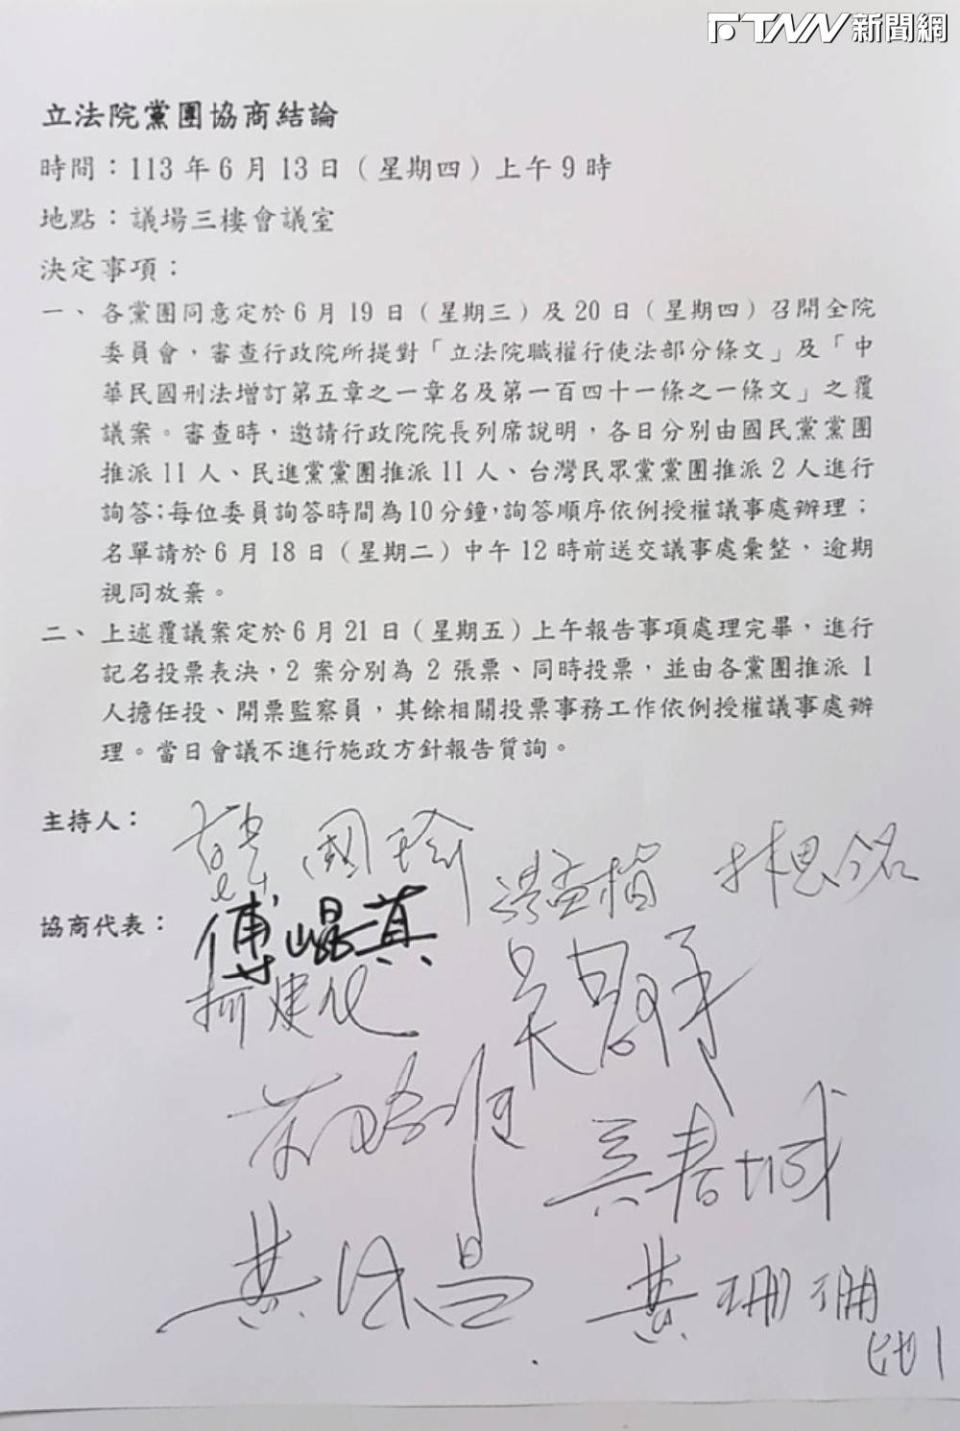 FTNN新聞網
立法院黨團協商結論
時間：113年6月13日（星期四）上午9時
地點：議場三樓會議室
決定事項：
一、各黨團同意定於6月19日（星期三）及20日（星期四）召開全院
委員會，審查行政院所提對「立法院職權行使法部分條文」及「中
華民國刑法增訂第五章之一章名及第一百四十一條之一條文」之覆
議案。審查時，邀請行政院院長列席說明，各日分別由國民黨黨團
推派11人、民進黨黨團推派11人、台灣民眾黨黨團推派2人進行
詢答；每位委員詢答時間為10分鐘，詢答順序依例授權議事處辦理；
名單請於6月18日（星期二）中午12時前送交議事處彙整，逾期
視同放棄。
二、上述覆議案定於6月21日（星期五）上午報告事項處理完畢，進行
記名投票表決，2案分別為2張票、同時投票，並由各黨團推派1
人擔任投、開票監察員，其餘相關投票事務工作依例授權議事處辦
理。當日會議不進行施政方針報告質詢。
主持人：
韓國瑜
洪孟楷 林思銘
協商代表：
傅崐萁
柯建銘
吳春城
黃國昌 黃珊珊